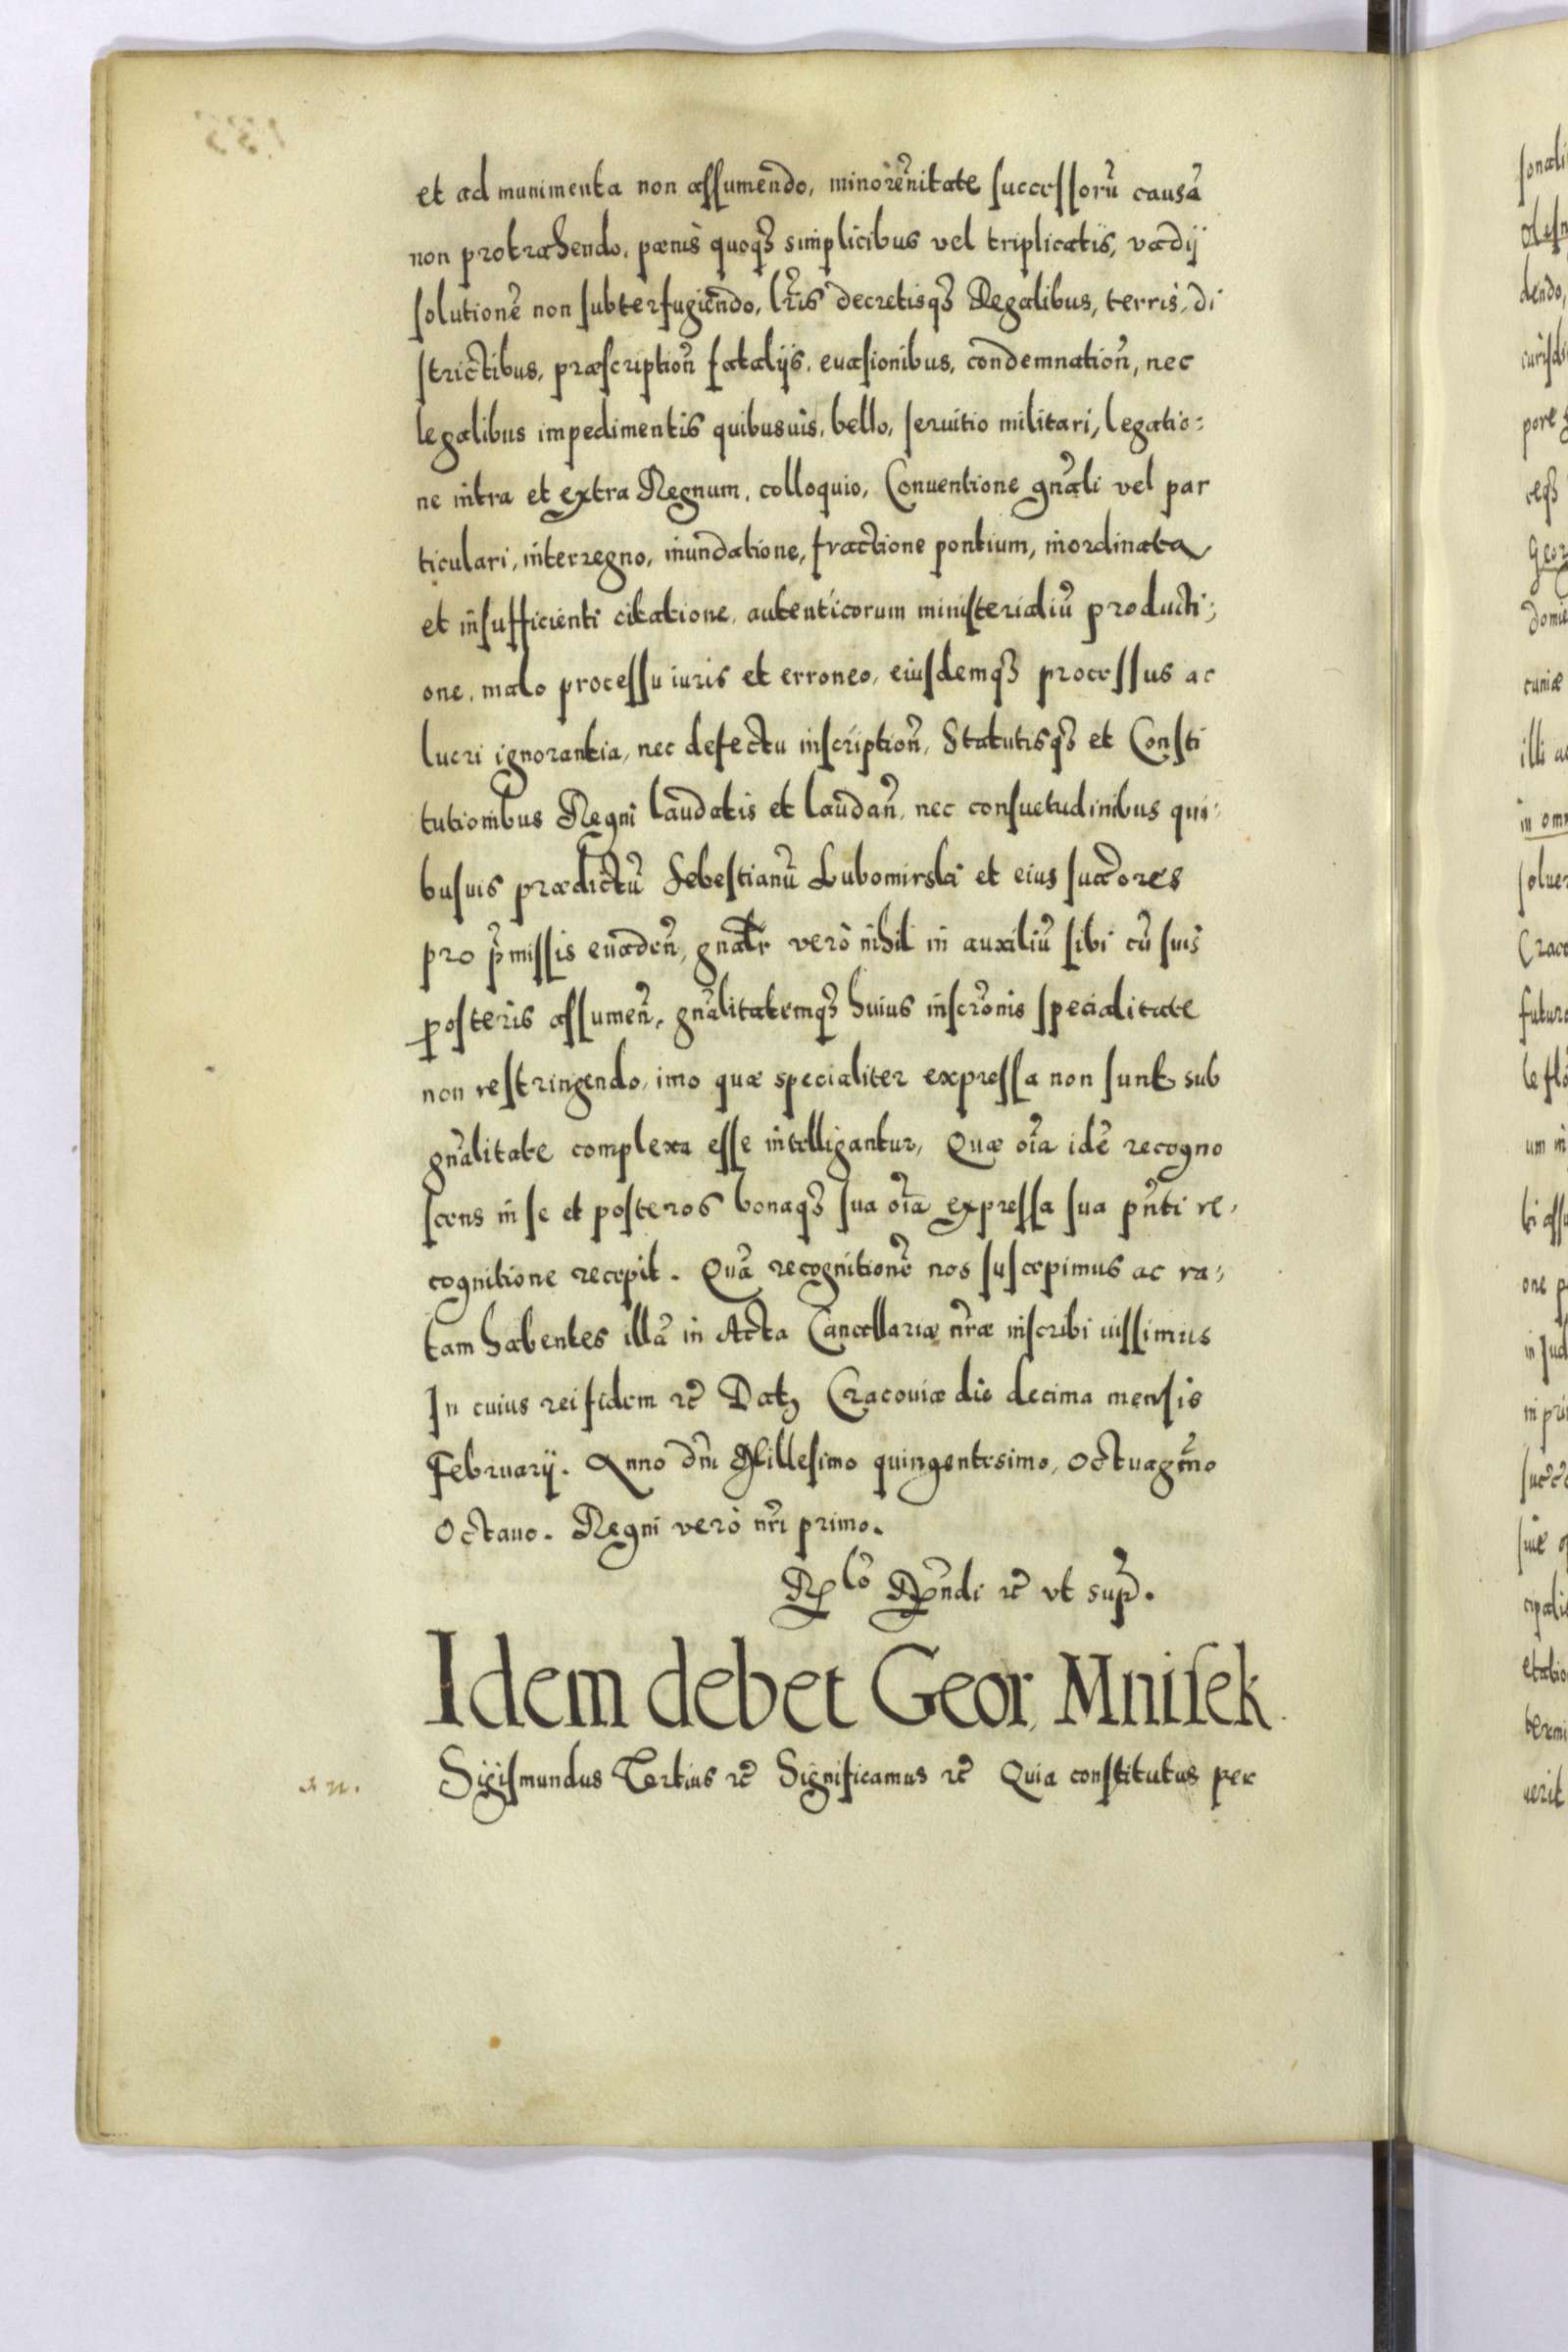 et ad munimenta non aſſumendo, minorēnitate ſucceſſorū causā
non protrahendo, pænis quoqꝫ simplicibus vel triplicatis, vadij
ſolutionē non ſubterfugiendo, lr̃is decretisqꝫ Regalibus, terris, di
ſtrictibus, præſcription̄ fatalijs, euaſionibus, condemnation̄, nec
legalibus impedimentis quibusuis, bello, ſeruitio militari, legatio:
ne intra et extra Regnum, colloquio, Conuentione gnāli vel par
ticulari, interregno, inundatione, fractione pontium, inordinata
et inſufficienti citatione, autenticorum miniſterialiū producti:
one, malo proceſſu iuris et erroneo, eiuſdemqꝫ proceſſus ac
lucri ignorantia, nec defectu inſcription̄, Statutisqꝫ et Conſti
tutionibus Regni laudatis et laudan̄, nec conſuetudinibus qui:
buſuis prædictū Sebeſtianū Lubomirski et eius ſucc̄ores
pro p̄miſſis euaden̄, gnalr̃ verò nihil in auxiliū ſibi cū ſuis
poſteris aſſumen̄, gnālitatemqꝫ huius inſcrōnis ſpecialitate
non reſtringendo, imo quæ specialiter expreſſa non ſunt sub
gnālitate complexa eſſe intelligantur, Quæ oīa idē recogno
ſcens in ſe et poſteros bonaqꝫ ſua oīa expreſſa ſua pn̄ti re,
cognitione recepit. Quā recognitionē nos ſuſcepimus ac ra,
tam habentes illā in Acta Cancellariæ nr̃æ inſcribi iuſſimus
In cuius rei fidem ꝛc̄ Datꝫ Cracouiæ die decima menſis
Februarij. Anno dn̄i Milleſimo quingentesimo, Octuagmo
Octauo. Regni verò nr̃i primo.
Rlō Rn̄di ꝛc̄ vt sup̄.
Idem debet Geor, Mniſek.
Sigiſmundus Tertius ꝛc̄ Significamus ꝛc̄ Quia conſtitutus per